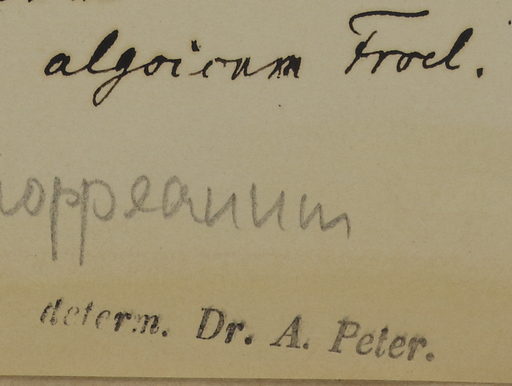 algoicum Froel.
hoppeanum
determ. Dr. A. Peter.